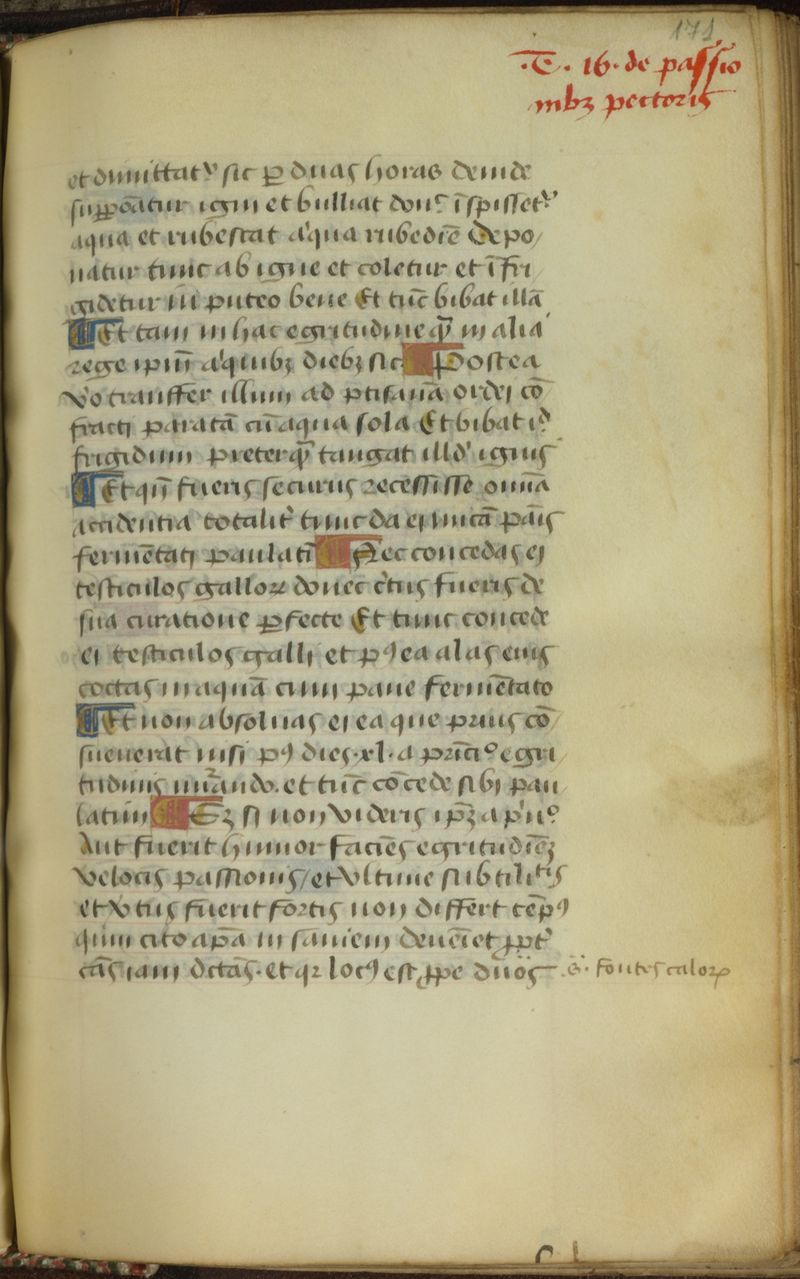 171
·C̄· 16· de passio
nibꝫ pectoris
et dimittatᷣ sic ꝑ duas horas deinde
suppōatur igni et bulliat donc̉ īspissetᷣ
aqua et rubescat aqua rubedīe Depo
natur tunc ab igne et coletur et ī fri
gidetur in puteo bene Et tūc bibat illā
¶ Et tam in hac egritudine qͣ̄ in alia
rege ipm̄ a quibꝫ diebꝫ sic ¶ Postea
vͦo transfer illum ad ptisanā ordei cō
fracti paratā cū aqua sola Et bibat
frigidum preterqͣ̄ tangat illd̉ ignis
¶ Et qn̄ fueris securus recessisse omīa
accidentia totalitᷣ tunc da ei micā pāis
fermētati paulatī ¶ Nec concedas ei
testiculos galloꝝ donec c̉tus fueris de
sua curatione ꝑfecte Et tunc concede
ei testiculos galli et pꝰ ea alas eius
coctas in aquā cum pane fermētato
¶ Et non absoluas ei ea que prius cō
sueuerat nisi pꝰ dies·xl·a prīci͛ egri
tudinis et tūc cōcede sibi pau
latim ¶ Sꝫ si non videris ipꝫ a pͥnͦ
Aut fuerit humor faciēs egritudīeꝫ
velocis passionis/et vltime subtilitͣis
et vͬtus fuerit fortis non differt tēpꝰ
quin cito apā in saniem deueīet ꝓptᷣ
cās iam dictas·et qꝛ locꝰ est ꝓpe duos
·G· fontes caloꝝ